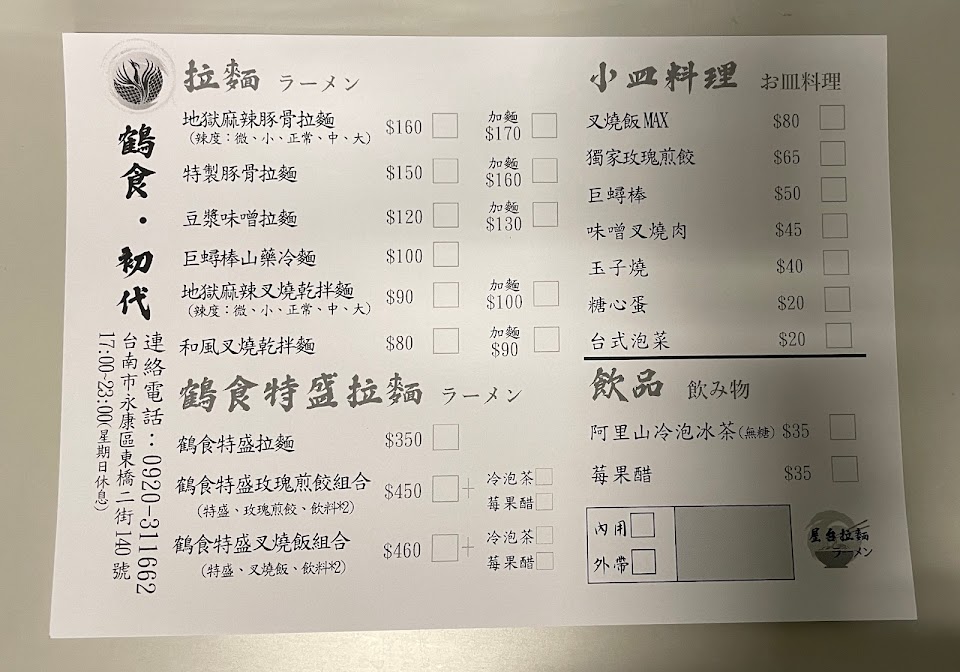 鶴食・初代
連絡電話：0920-311662
台南市永康區東橋二街140號
17:00~23:00(星期日休息)
拉麵 ラーメン
地獄麻辣豚骨拉麵 $160 加麵 $170
(辣度：微、小、正常、中、大)
特製豚骨拉麵 $150 加麵 $160
豆漿味噌拉麵 $120 加麵 $130
巨蟳棒山藥冷麵 $100
地獄麻辣叉燒乾拌麵 $90 加麵 $100
(辣度：微、小、正常、中、大)
和風叉燒乾拌麵 $80 加麵 $90
鶴食特盛拉麵 ラーメン
鶴食特盛拉麵 $350
鶴食特盛玫瑰煎餃組合 $450 + 冷泡茶 莓果醋
(特盛、玫瑰煎餃、飲料*2)
鶴食特盛叉燒飯組合 $460 + 冷泡茶 莓果醋
(特盛、叉燒飯、飲料*2)
小皿料理 お皿料理
叉燒飯MAX $80
獨家玫瑰煎餃 $65
巨蟳棒 $50
味噌叉燒肉 $45
玉子燒 $40
糖心蛋 $20
台式泡菜 $20
飲品 飲み物
阿里山冷泡冰茶(無糖) $35
莓果醋 $35
內用
外帶
星台拉麵
ラーメン